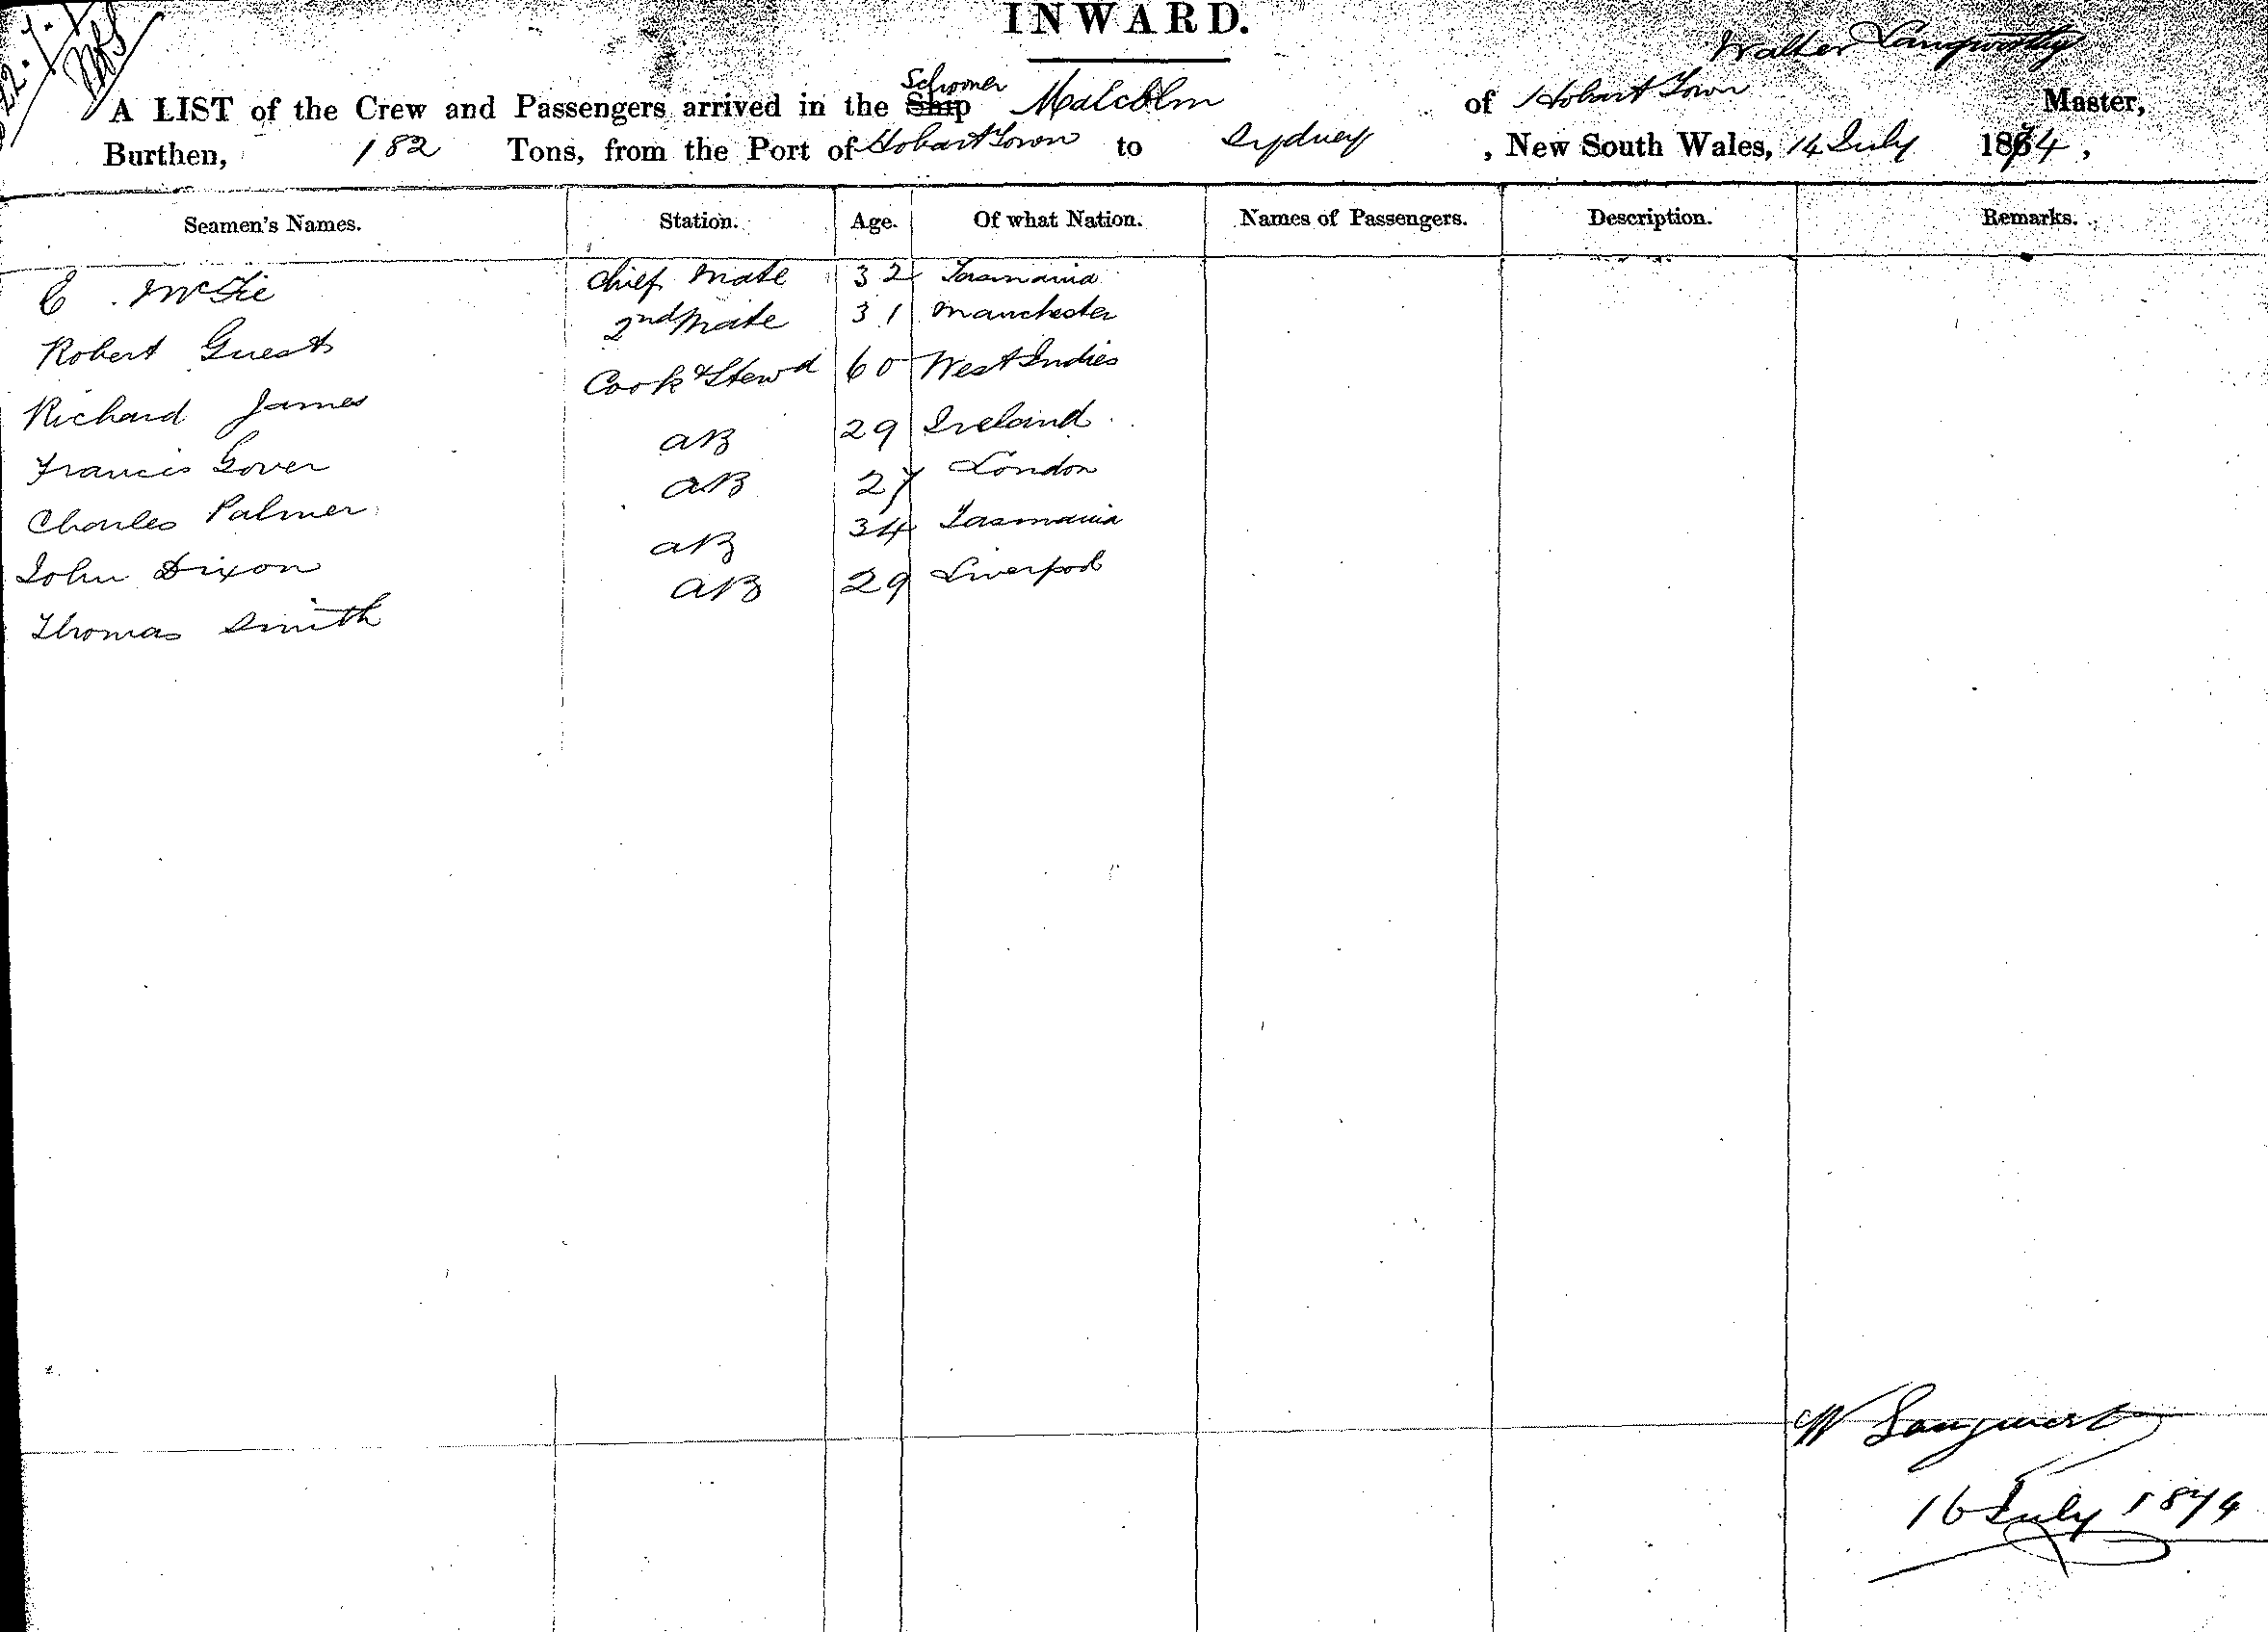 INWARD.
Walter Langworthy
A LIST of the Crew and Passengers arrived in the Ship Schooner Malcolm of Hobart Town Master,
Burthen, 182 Tons, from the Port of Hobart Town to Sydney, New South Wales, 14 July 1874,
Seamen's Names. Station. Age. Of what Nation. Names of Passengers. Description. Remarks.
E. McFie Chief Mate 32 Tasmania
Robert Guest 2nd Mate 31 Manchester
Richard James Cook & Stewd 60 West Indies
Francis Gover AB 29 Ireland
Charles Palmer AB 27 London
John Dixon AB 34 Tasmania
Thomas Smith AB 29 Liverpool
W Langworthy
16 July 1874